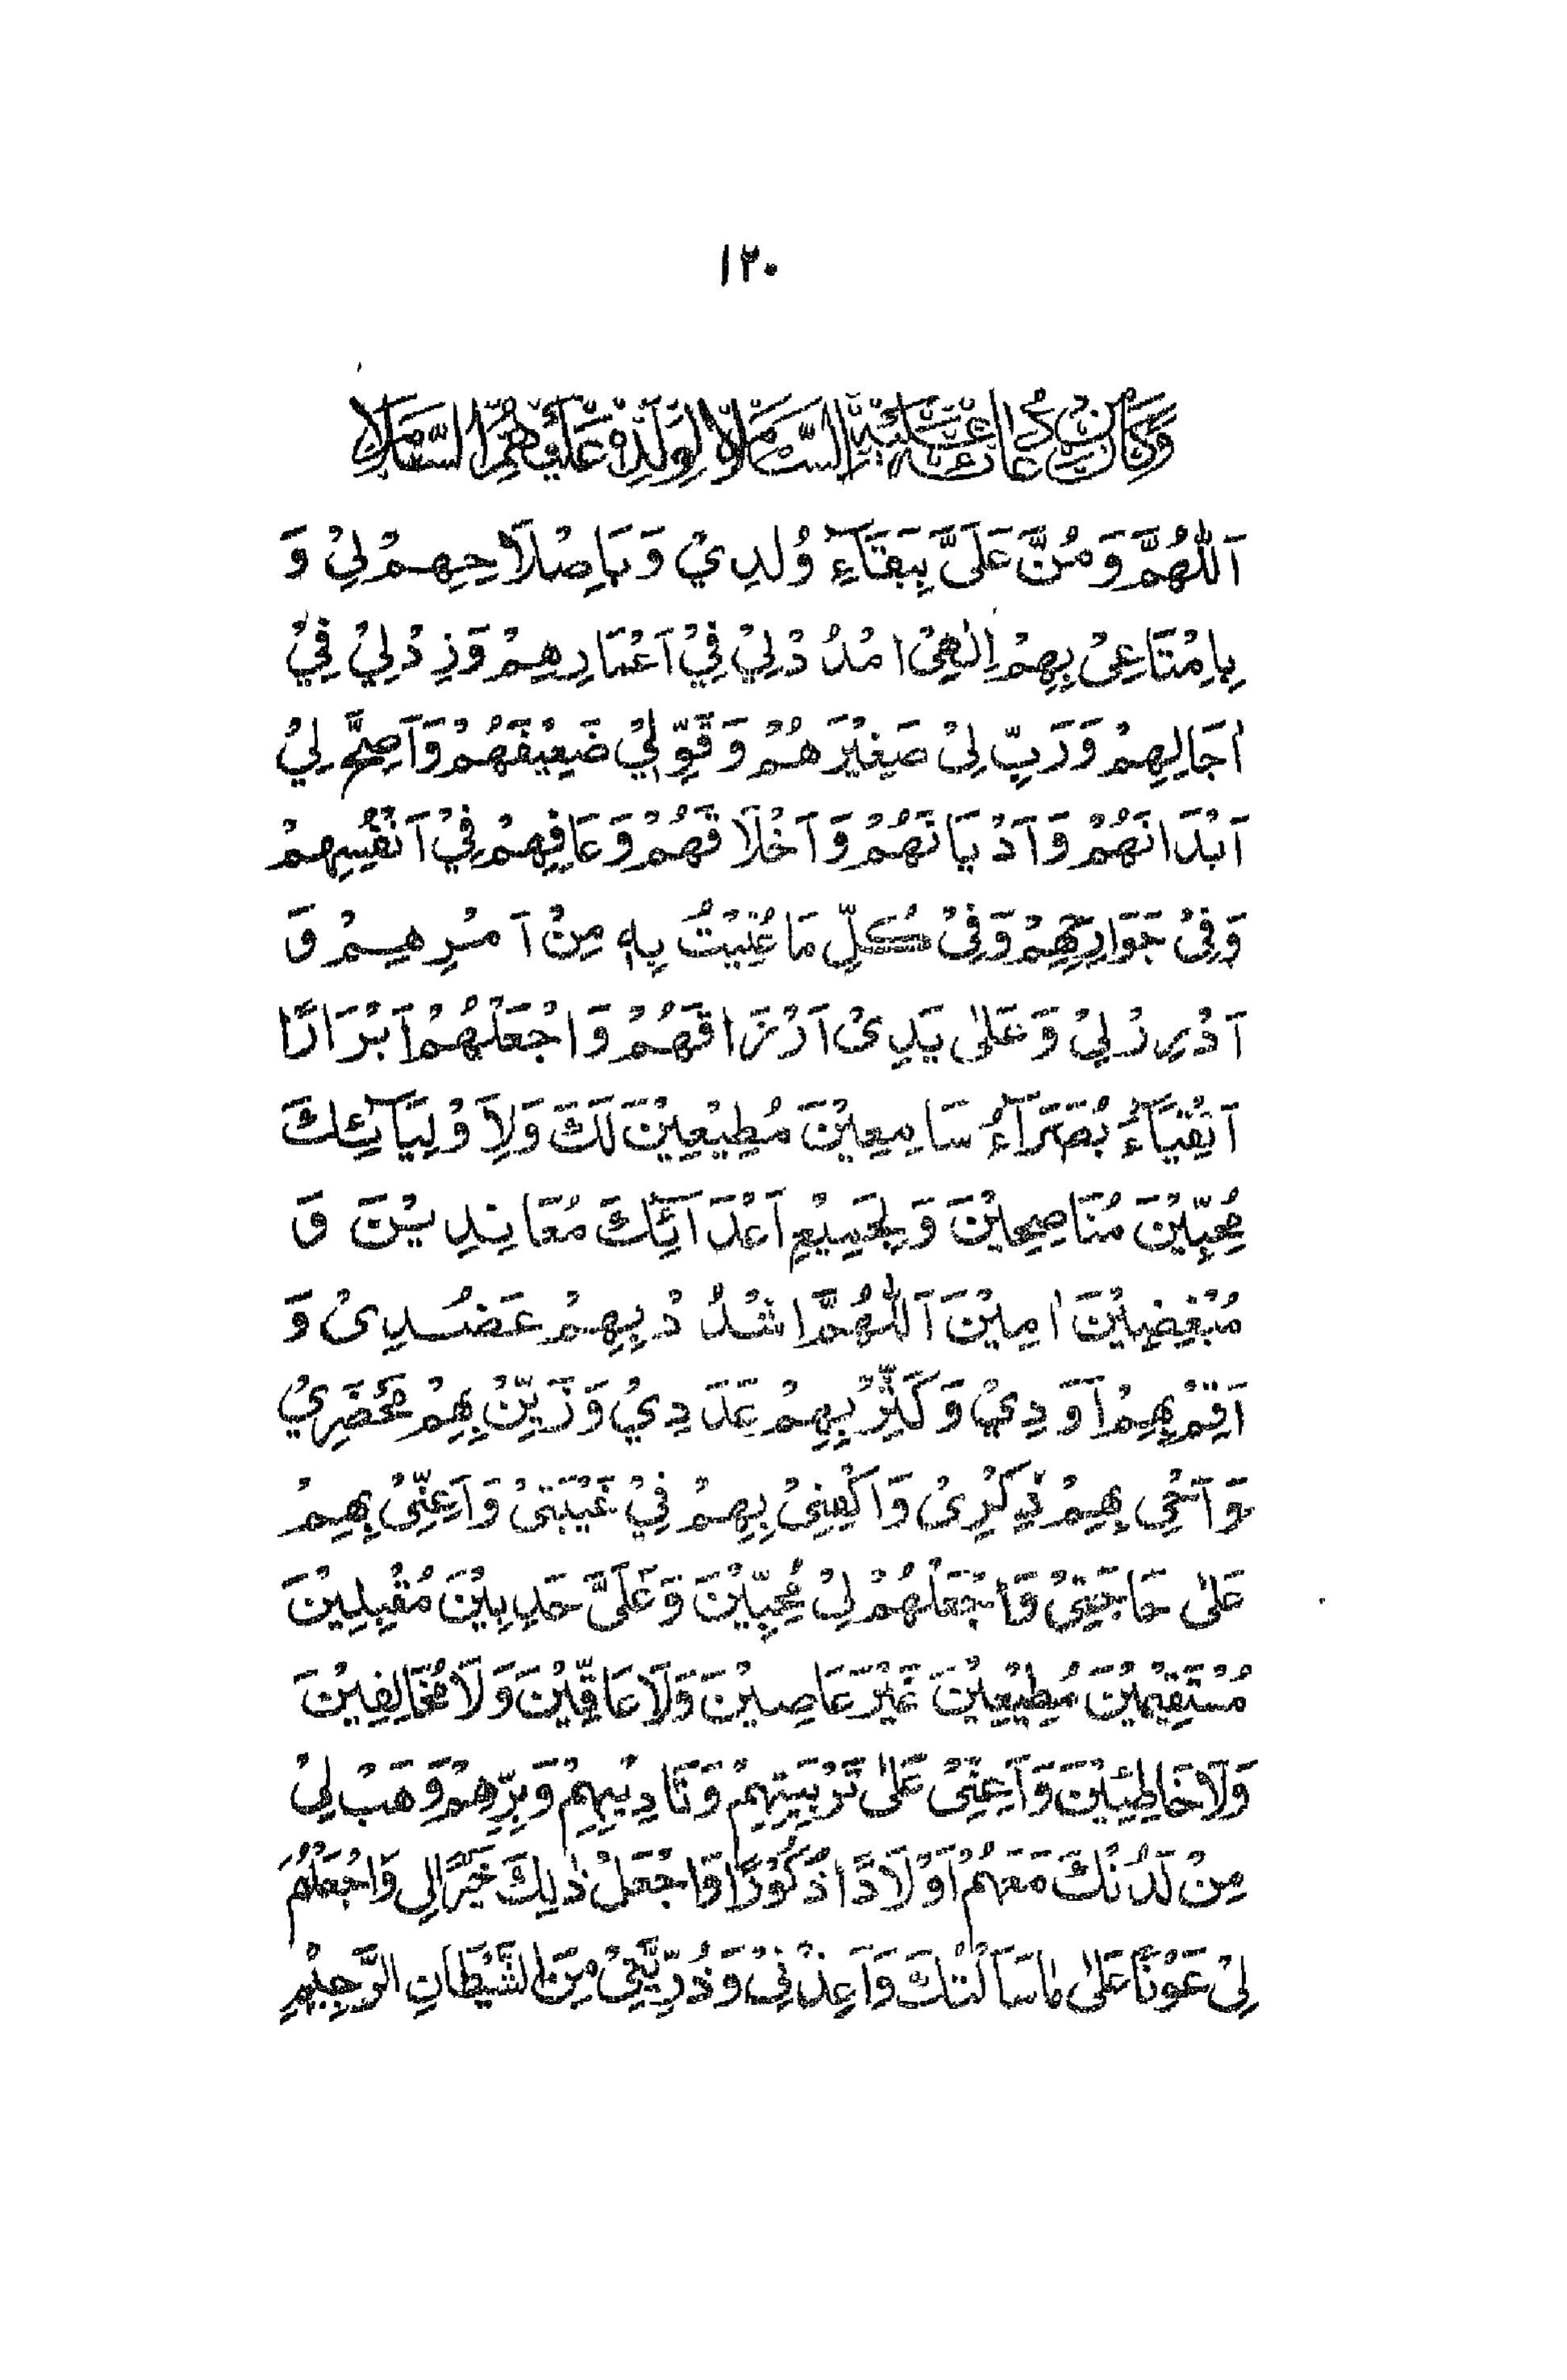 ١٢٠
وَكَانَ مِنْ دُعَائِهِ عَلَيْهِ السَّلَامُ لِوُلْدِهِ عَلَيْهِمُ السَّلَامُ
اَللّٰهُمَّ وَمُنَّ عَلَىَّ بِبَقَآءِ وُلْدِيْ وَبِاِصْلَاحِهِمْ لِيْ وَ
بِاِمْتَاعِىْ بِهِمْ اِلٰهِىْ امْدُدْ لِيْ فِيْ اَعْمَارِهِمْ وَزِدْ لِيْ فِيْ
اٰجَالِهِمْ وَرَبِّ لِىْ صَغِيْرَهُمْ وَقَوِّ لِيْ ضَعِيْفَهُمْ وَاَصِحَّ لِيْ
اَبْدَانَهُمْ وَاَدْيَانَهُمْ وَاَخْلَاقَهُمْ وَعَافِهِمْ فِيْ اَنْفُسِهِمْ
وَفِىْ جَوَارِحِهِمْ وَفِىْ كُلِّ مَا عُنِيْتُ بِهٖ مِنْ اَمْرِهِمْ وَ
اَدْرِرْ لِيْ وَعَلٰى يَدِىْ اَرْزَاقَهُمْ وَاجْعَلْهُمْ اَبْرَارًا
اَتْقِيَآءَ بُصَرَآءَ سَامِعِيْنَ مُطِيْعِيْنَ لَكَ وَلِاَوْلِيَآئِكَ
مُحِبِّيْنَ مُنَاصِحِيْنَ وَلِجَمِيْعِ اَعْدَآئِكَ مُعَانِدِيْنَ وَ
مُبْغِضِيْنَ اٰمِيْنَ اَللّٰهُمَّ اشْدُدْ بِهِمْ عَضُدِىْ وَ
اَقِمْ بِهِمْ اَوَدِيْ وَكَثِّرْ بِهِمْ عَدَدِيْ وَزَيِّنْ بِهِمْ مَحْضَرِيْ
وَاَحْىِ بِهِمْ ذِكْرِىْ وَاكْفِنِىْ بِهِمْ فِيْ غَيْبَتِىْ وَاَعِنِّىْ بِهِمْ
عَلٰى حَاجَتِىْ وَاجْعَلْهُمْ لِىْ مُحِبِّيْنَ وَعَلَىَّ حَدِبِيْنَ مُقْبِلِيْنَ
مُسْتَقِيْمِيْنَ مُطِيْعِيْنَ غَيْرَ عَاصِيْنَ وَلَا عَاقِّيْنَ وَلَا مُخَالِفِيْنَ
وَلَا خَاطِئِيْنَ وَاَعِنِّىْ عَلٰى تَرْبِيَتِهِمْ وَتَادِيْبِهِمْ وَبِرِّهِمْ وَهَبْ لِىْ
مِنْ لَدُنْكَ مَعَهُمْ اَوْلَادًا ذُكُوْرًا وَاجْعَلْ ذٰلِكَ خَيْرًا لِى وَاجْعَلْهُمْ
لِىْ عَوْنًا عَلٰى مَا سَاَلْتُكَ وَاَعِذْنِىْ وَذُرِّيَّتِىْ مِنَ الشَّيْطَانِ الرَّجِيْمِ